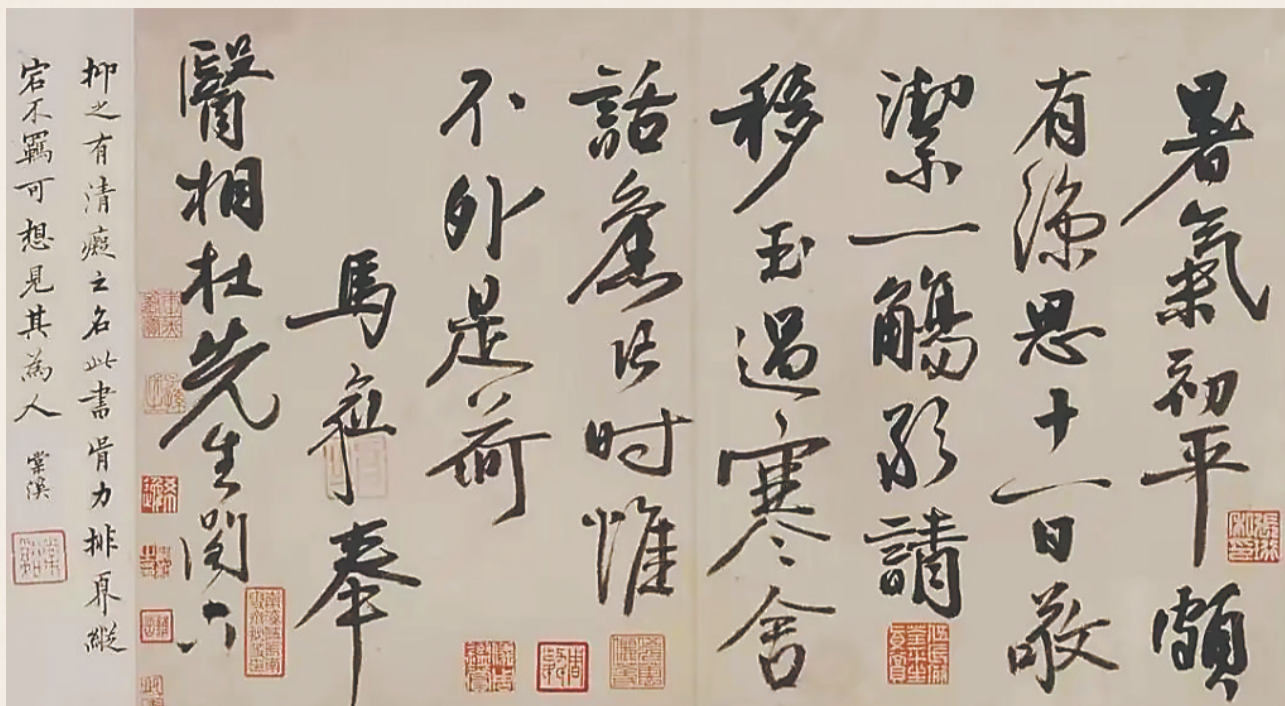 暑氣初平頗
有涼思十一日敬
潔一觴 請
移玉過寒舍
話舊片時惟
不外是荷
馬愈奉
醫相杜先生閣下
抑之有清癡之名此書骨力排奡縱
宕不羈可想見其為人 棠溪